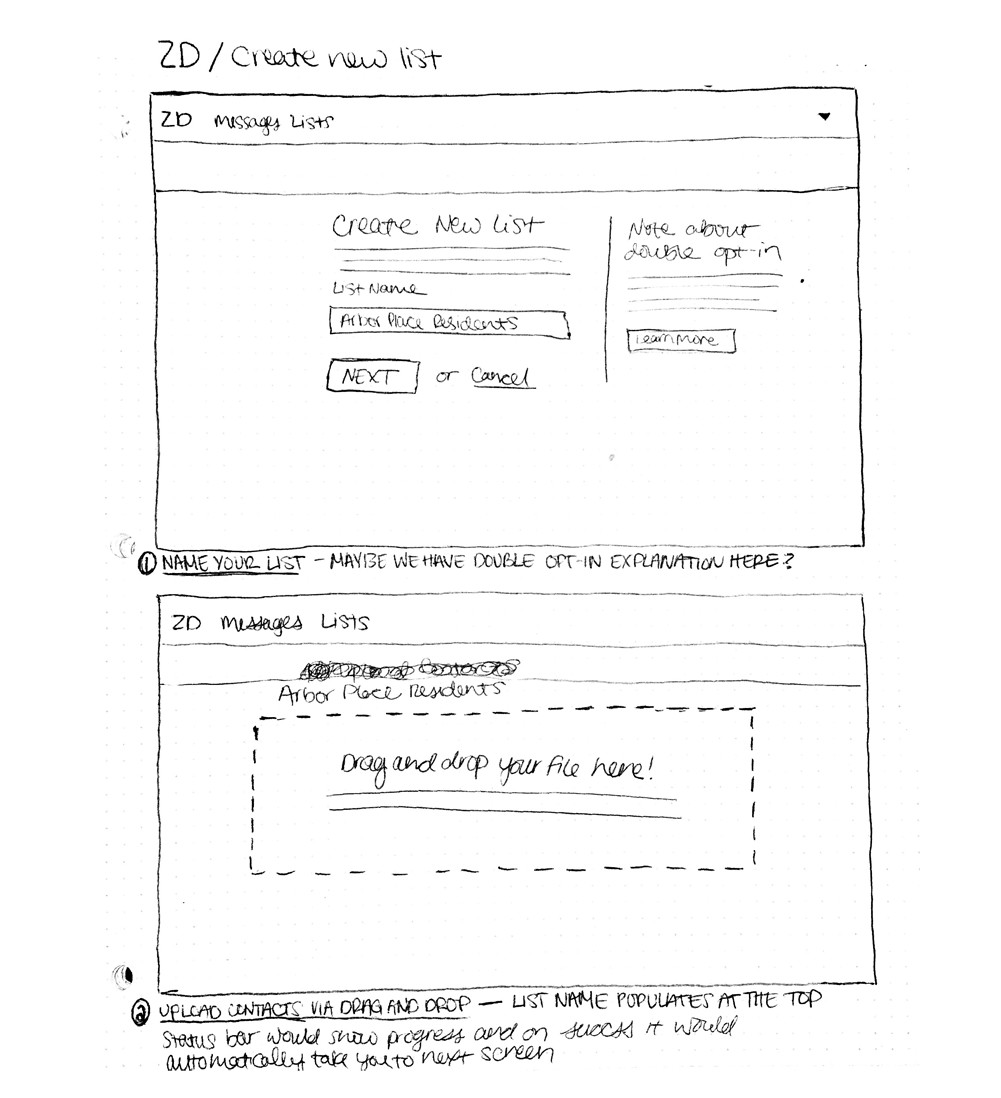 ZD / Create new list
ZD Messages Lists
Create New List
List Name
Arbor Place Residents
NEXT or Cancel
Note about
double opt-in
Learn more
① NAME YOUR LIST – MAYBE WE HAVE DOUBLE OPT-IN EXPLANATION HERE?
ZD Messages Lists
Arbor Place Residents
Drag and drop your file here!
② UPLOAD CONTACTS VIA DRAG AND DROP — LIST NAME POPULATES AT THE TOP
Status bar would show progress and on success it would
automatically take you to next screen